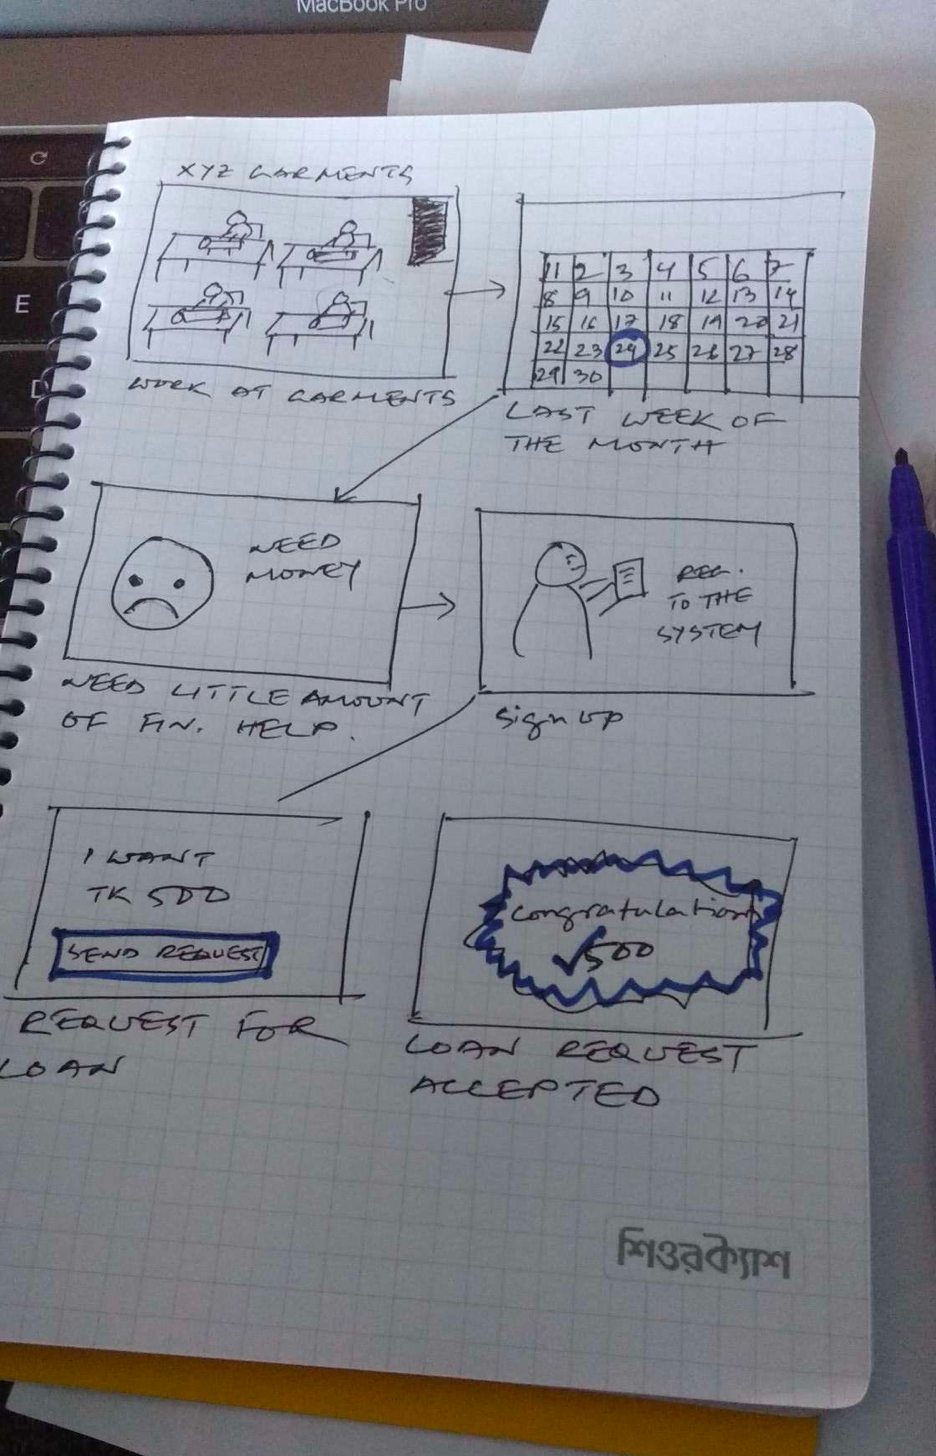 MacBook Pro
E
D
XYZ GARMENTS
WORK AT GARMENTS
1 2 3 4 5 6 7
8 9 10 11 12 13 14
15 16 17 18 19 20 21
22 23 24 25 26 27 28
29 30
LAST WEEK OF
THE MONTH
NEED
MONEY
NEED LITTLE AMOUNT
OF FIN. HELP.
REG.
TO THE
SYSTEM
Sign up
I WANT
TK 500
SEND REQUEST
REQUEST FOR
LOAN
Congratulation
500
LOAN REQUEST
ACCEPTED
শিওরক্যাশ